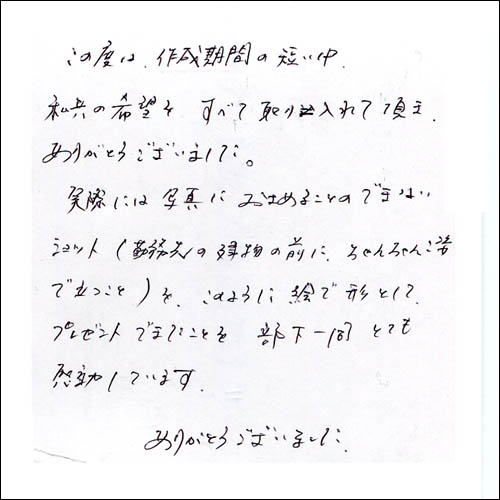 この度は、作成期間の短い中、
私共の希望を すべて取り入れて頂き、
ありがとうございました。
実際には写真におさめることのできない
ショット(勤務先の建物の前に、ちゃんちゃんこ姿
で立つこと)を、このように絵で形として、
プレゼントできたことを 部下一同 とても
感動しています。
ありがとうございました。